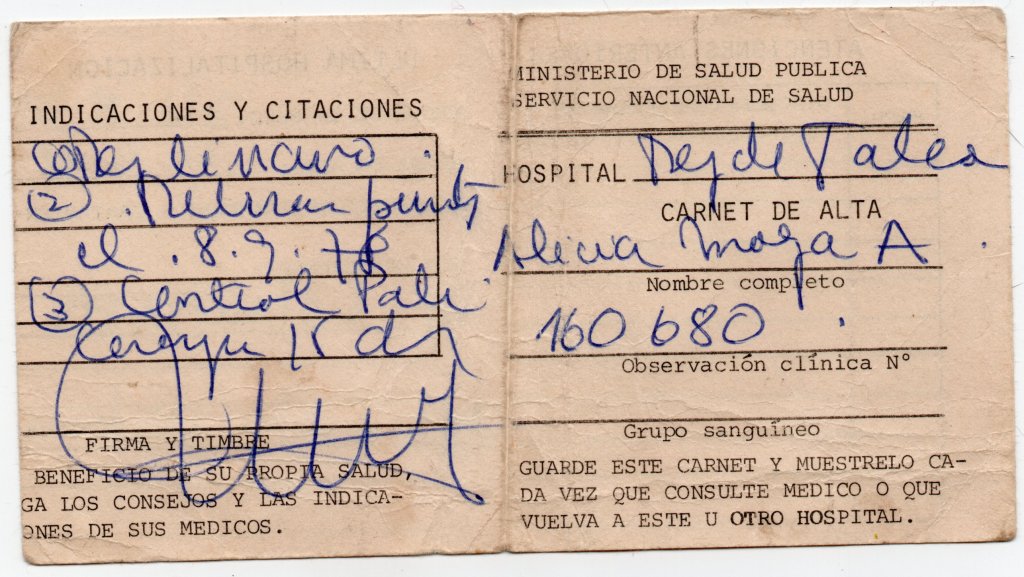 INDICACIONES Y CITACIONES
① Reg. liviano.
② . Retirar puntos
el . 8. 9. 78
③ Control Poli.
Cirugía 15 d
FIRMA Y TIMBRE
BENEFICIO DE SU PROPIA SALUD,
GA LOS CONSEJOS Y LAS INDICA-
ONES DE SUS MEDICOS.
MINISTERIO DE SALUD PUBLICA
SERVICIO NACIONAL DE SALUD
HOSPITAL Reg de Talca
CARNET DE ALTA
Alicia Moya A .
Nombre completo
160680 .
Observación clínica N°
Grupo sanguíneo
GUARDE ESTE CARNET Y MUESTRELO CA-
DA VEZ QUE CONSULTE MEDICO O QUE
VUELVA A ESTE U OTRO HOSPITAL.